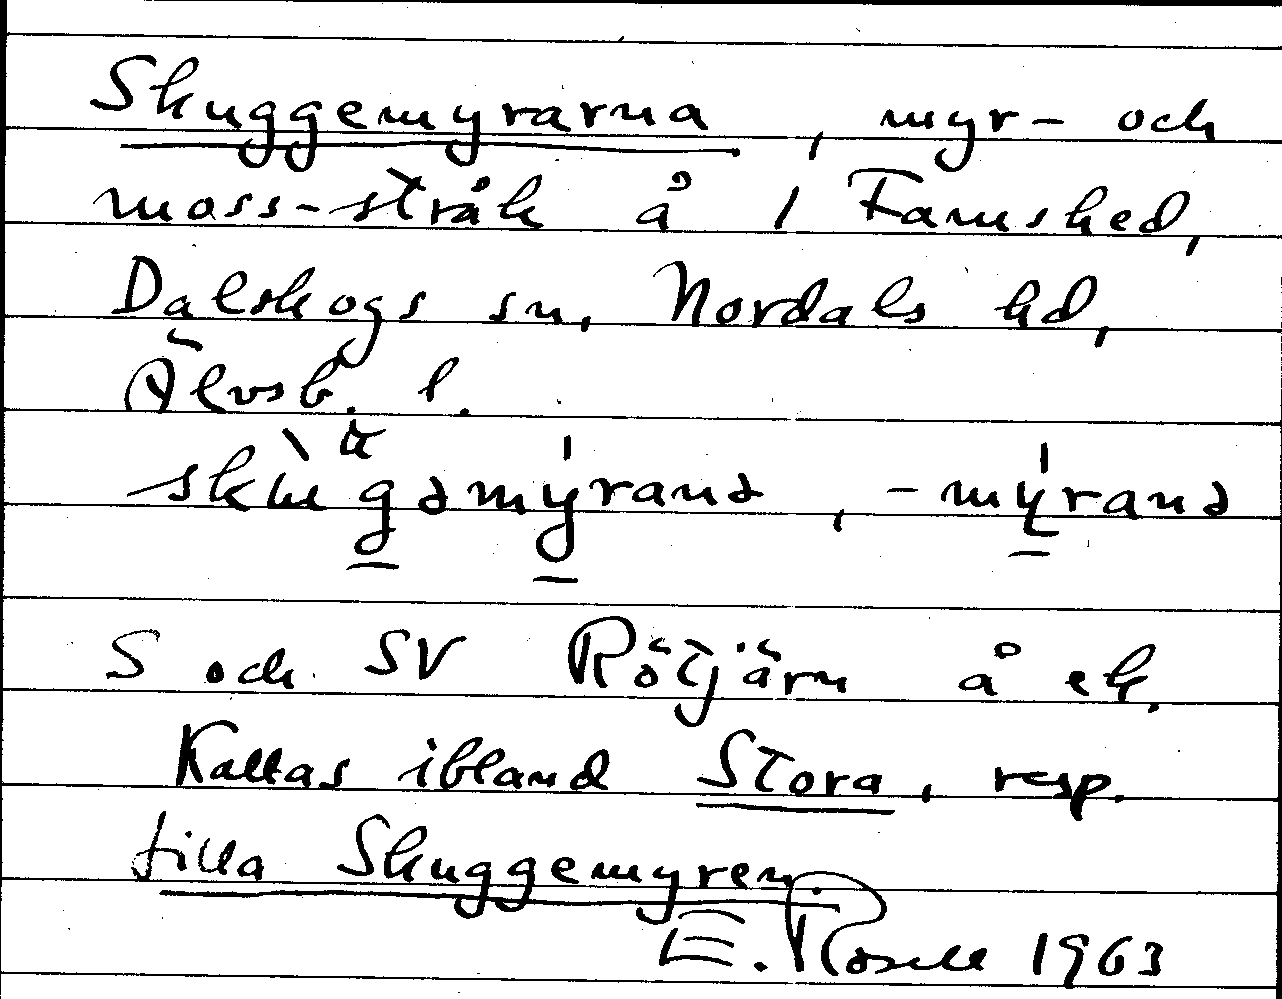 Skuggemyrarna, myr- och
moss-stråk å 1 Famshed,
Dalskogs sn, Nordals hd,
Älvsb. l.
S och SV Rötjärn å ek.
Kallas ibland Stora, resp.
Lilla Skuggemyren.
E. Rosell 1963